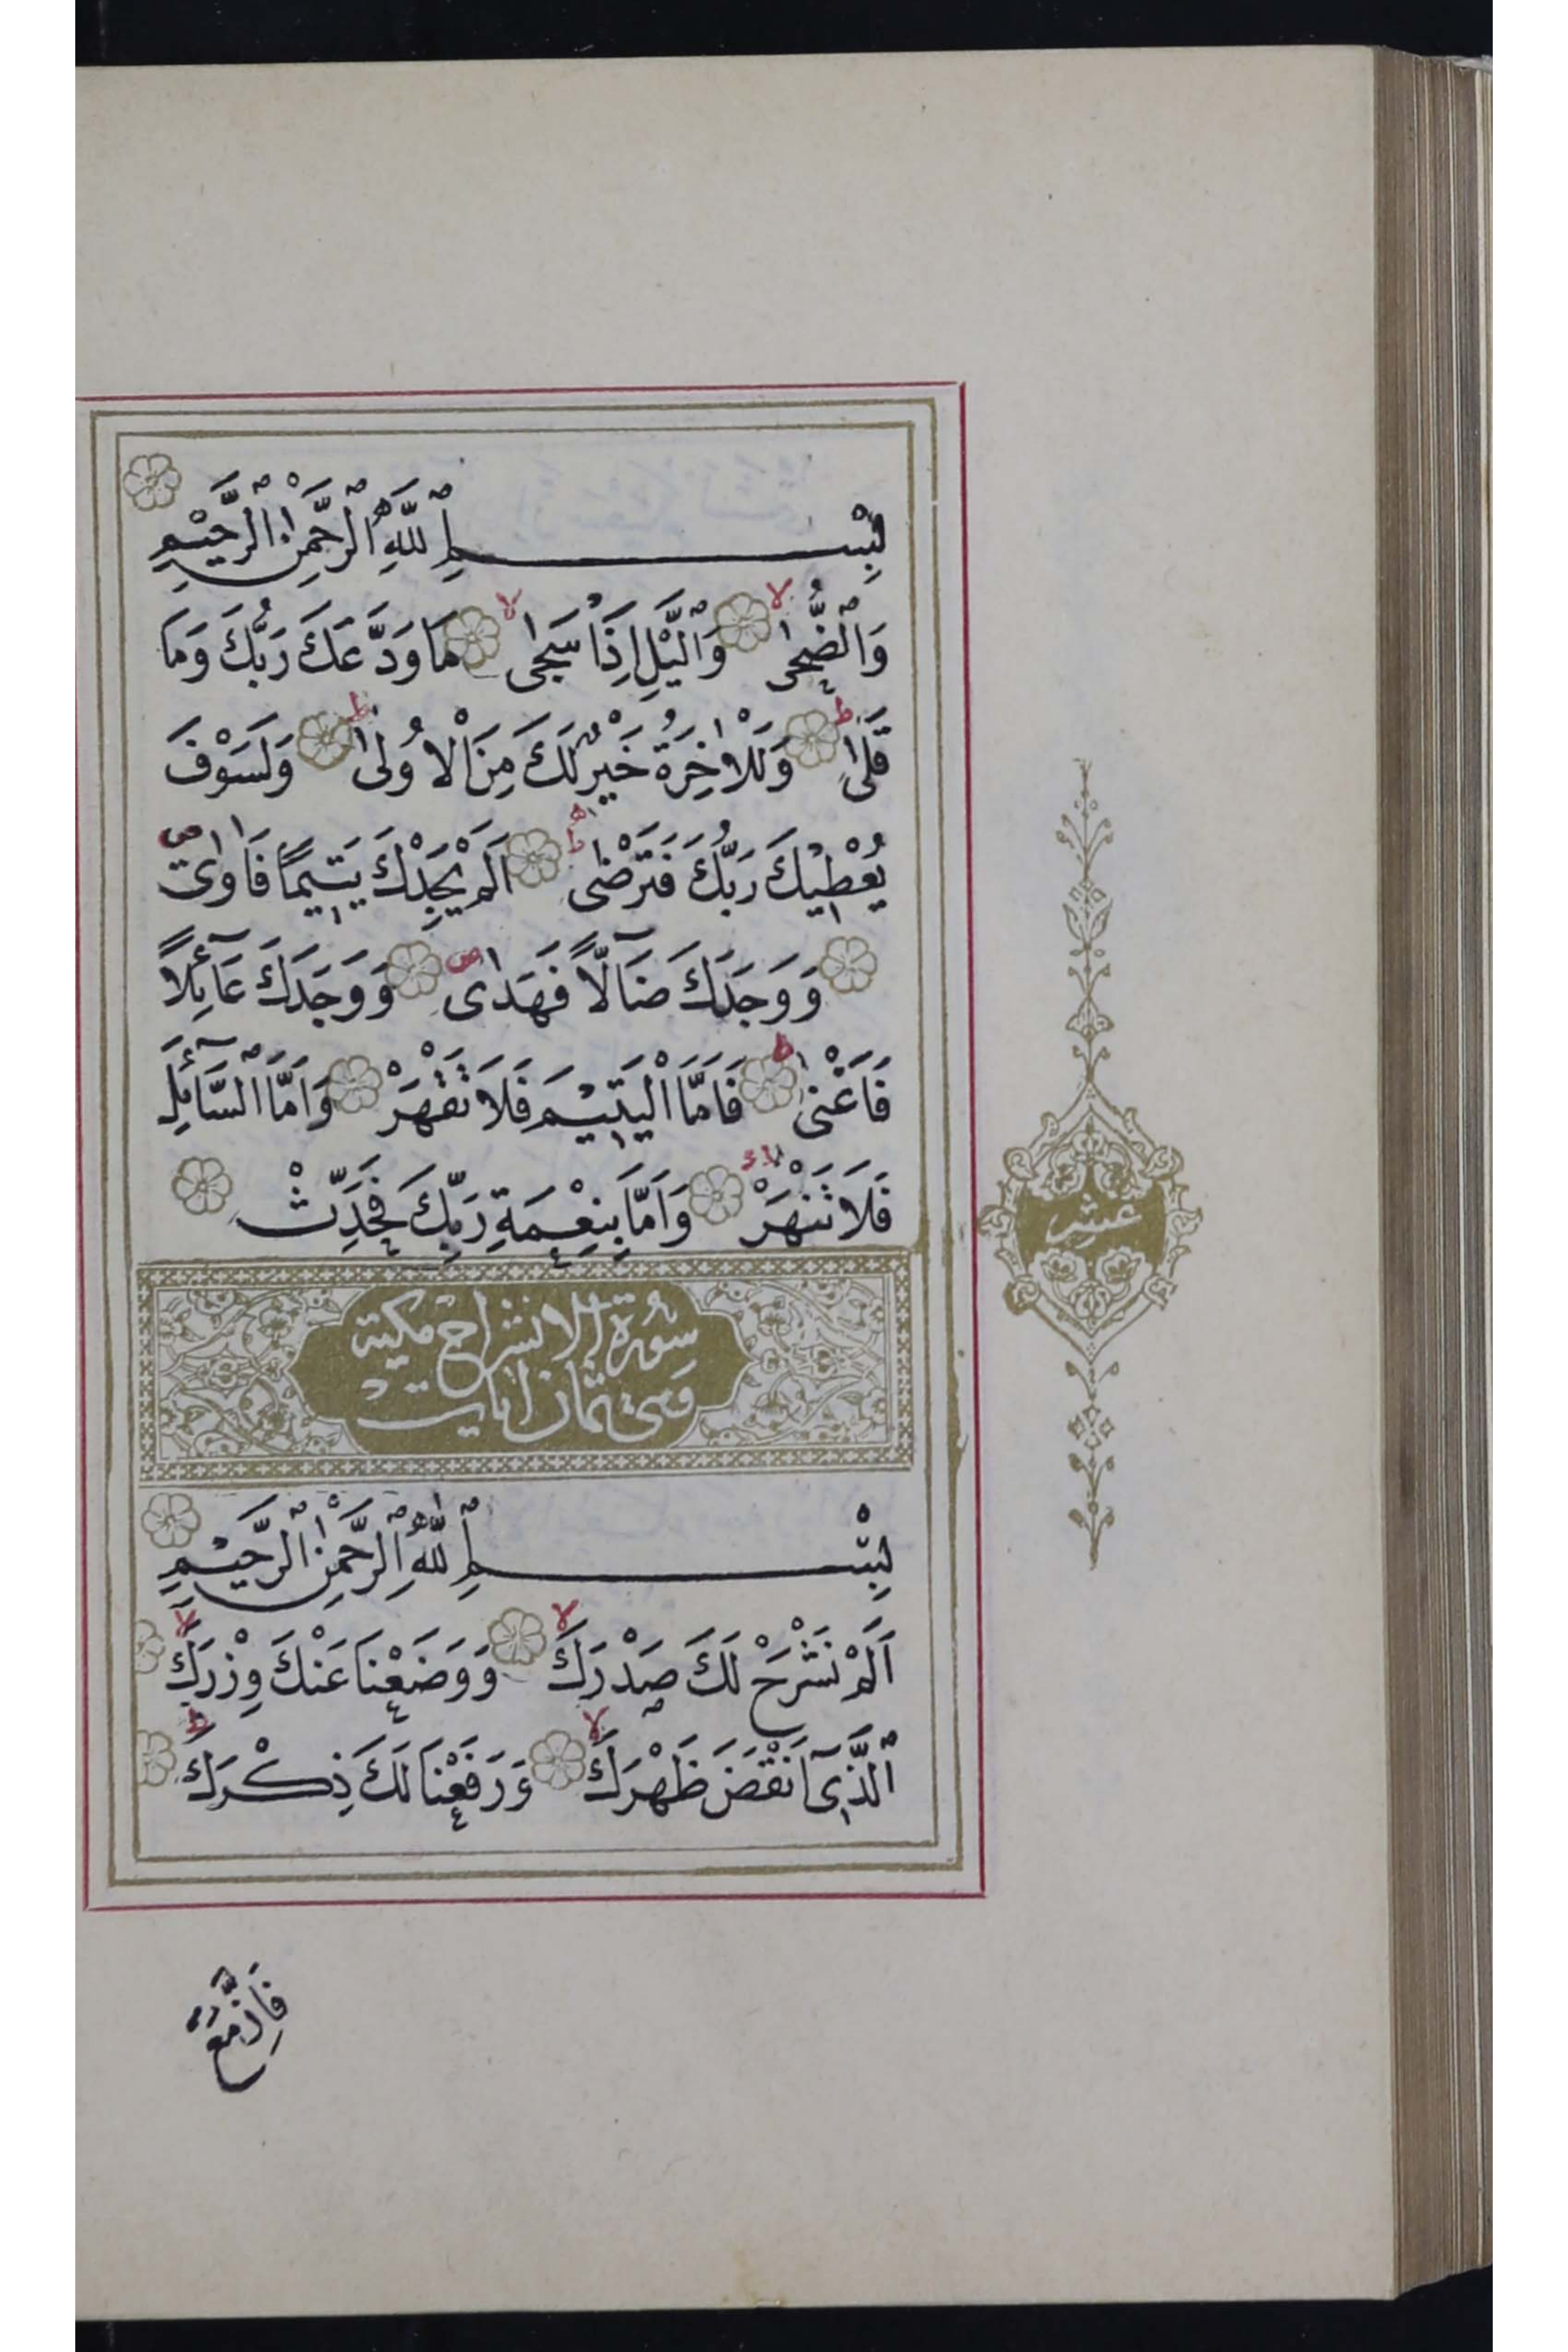 بِسْمِ ٱللّٰهِ ٱلرَّحْمٰنِ ٱلرَّحِيْمِ
وَٱلضُّحٰى لا وَٱلَّيْلِ اِذَا سَجٰى لا مَا وَدَّعَكَ رَبُّكَ وَمَا
قَلٰى ط وَلَلْاٰخِرَةُ خَيْرٌ لَكَ مِنَ الْاُولٰى ط وَلَسَوْفَ
يُعْطِيْكَ رَبُّكَ فَتَرْضٰى ط اَلَمْ يَجِدْكَ يَتِيْمًا فَاٰوٰى ص
وَوَجَدَكَ ضَآلًّا فَهَدٰى ص وَوَجَدَكَ عَآئِلًا
فَاَغْنٰى ط فَاَمَّا الْيَتِيْمَ فَلَا تَقْهَرْ وَاَمَّا ٱلسَّآئِلَ
فَلَا تَنْهَرْ وَاَمَّا بِنِعْمَةِ رَبِّكَ فَحَدِّثْ
عشر
سُورَة الانشراح مكية
وهى ثمان اٰيات
بِسْمِ ٱللّٰهِ ٱلرَّحْمٰنِ ٱلرَّحِيْمِ
اَلَمْ نَشْرَحْ لَكَ صَدْرَكَ لا وَوَضَعْنَا عَنْكَ وِزْرَكَ لا
ٱلَّذِىٓ اَنْقَضَ ظَهْرَكَ لا وَرَفَعْنَا لَكَ ذِكْرَكَ ط
فَاِنَّ مَعَ